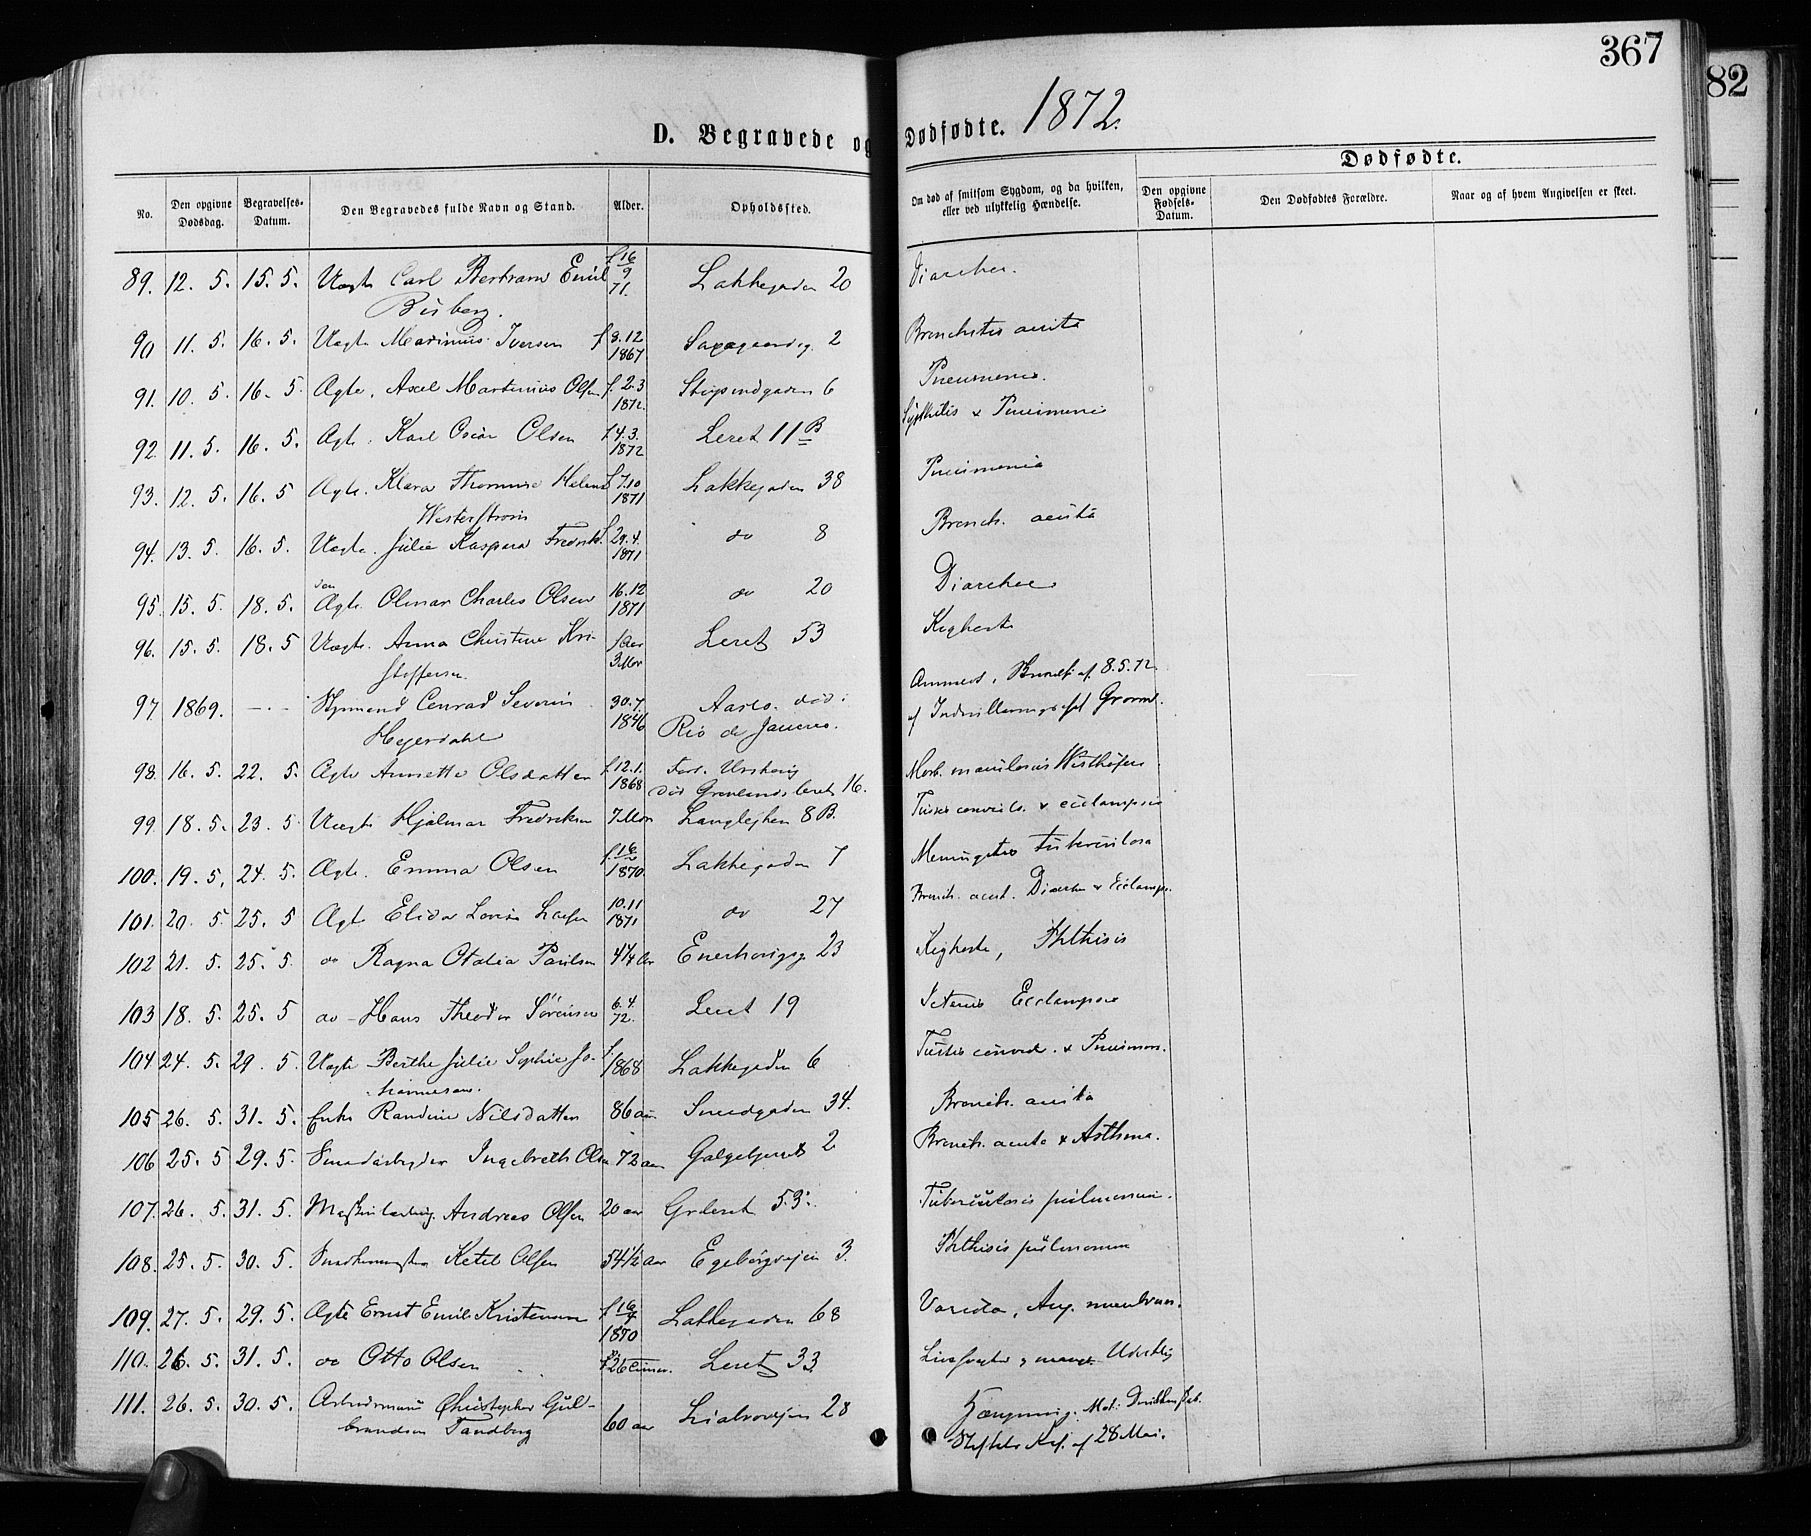 367
82
D. Begravede og Dødfødte. 1872.
Dødfødte.
No.
Den opgivne Dødsdag.
Begravelses-Datum.
Den Begravedes fulde Navn og Stand.
Alder.
Opholdssted.
Om død af smitsom Sygdom, og da hvilken, eller ved ulykkelig Hændelse.
Den opgivne Fødsels-Datum.
Den Dødfødtes Forældre.
Naar og af hvem Angivelsen er skeet.
89. 12. 5. 15. 5. Uægte Carl Bertram Emil f. 16/9 71. Lakkegaden 20 Diarrhee.
Bisberg.
90 11. 5. 16. 5. Uægte Marinius Iversen f 9.12 1867 Saxegaardsg. 2 Bronchitis acuta
91. 10. 5. 16. 5. Ægte. Axel Martinius Olsen f. 2.3 1872. Stupindgaden 6 Pneumonie.
92. 11. 5. 16. 5. Ægte. Karl Oscar Olsen f 4.3. 1872 Leret 11 B Syphilis & Pneumonie
93. 12. 5. 16. 5 Ægte. Klara Thomine Helene f 7.10 1871 Lakkegaden 38 Pneumonia
Westerstrøm
94. 13. 5. 16. 5. Uægte. Julie Kaspara Fredriks. f. 29.4. 1871 do 8 Bronch. acuta
95. 15. 5. 18. 5. Ægte Olmar Charles Olsen 16.12 1871 do 20 Diarrhee
96. 15. 5. 18. 5 Uægte. Anna Christine Kri- 1 Aar 3 Mdr Leret 53 Kighoste
stoffersen
97 1869. - - - Styrmand Conrad Severin 30.7. 1846 død i Rio de Janeiro.
Hejerdahl
af 8.5.72.
98. 16. 5. 22. 5. Ægte Annette Olsdatter f. 12.1. 1868 død Grønlandsleret 16. Morb. maculosus Werlhofii
99. 18. 5. 23. 5 Uægte Hjalmar Fredriksen 7 Mdr Langlejken 8 B. Tussis convuls. & eclampsia
100. 19. 5. 24. 5. Ægte. Emma Olsen 1870 Lakkegaden 7 Meningitis tuberculosa
101. 20. 5 25. 5 Ægte Elida Lovise 10.11 1871 do 27 Bronch. acut. Diarrhe & Eclamps.
102 21. 5. 25. 5 do Ragna Otalia Paulsen 4 1/4 Aar Enerhougsg 23 Kighoste, Phthisis
103 18. 5. 25. 5 do - Hans Theodor Sørensen 6.4. 72. Leret 19 Icterus Ecclampsia
104 24. 5. 29. 5. Uægte Berthe Julie Sophie Jo- f. 1868 Lakkegaden 6 Tussis convuls. & Pneumon.
hannesen.
105 26. 5. 31. 5. Enke Randine Nilsdatter 86 aar Smedgaden 34. Bronch. acuta
106 25. 5 29. 5. Ingebreth Olsen 72 aar Galgebjerget 2 Bronch. acuta & Asthma.
107. 26. 5. 31. 5. Andreas Olsen 20 aar Grleret 53. Tuberculosis pulmonum.
108. 25. 5. 30. 5. Ketil Olsen 54 1/2 aar Egebergvejen 3. Phthisis pulmonum
109. 27. 5. 29. 5. Ægte Ernst Emil Kristensen 1870 Lakkegaden 68 Variola, Ang. membran.
110. 26. 5. 31. 5. do Otto Olsen 26 Timer. Leret 33
111. 26. 5. 30. 5. Arbeidsmand Christopher Gul- 60 aar Liabrovejen 28 Hængning.
brandsen Tandberg
af 28 Mai.